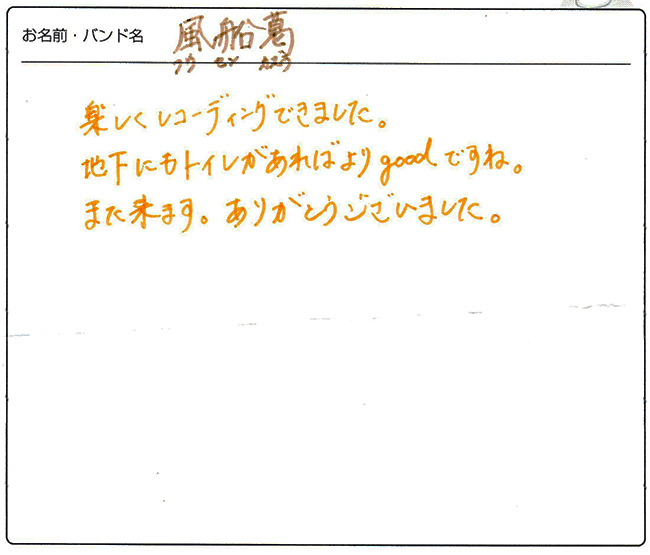 お名前・バンド名 風船葛
フウ セン カズラ
楽しくレコーディングできました。
地下にもトイレがあればよりgoodですね。
また来ます。ありがとうございました。